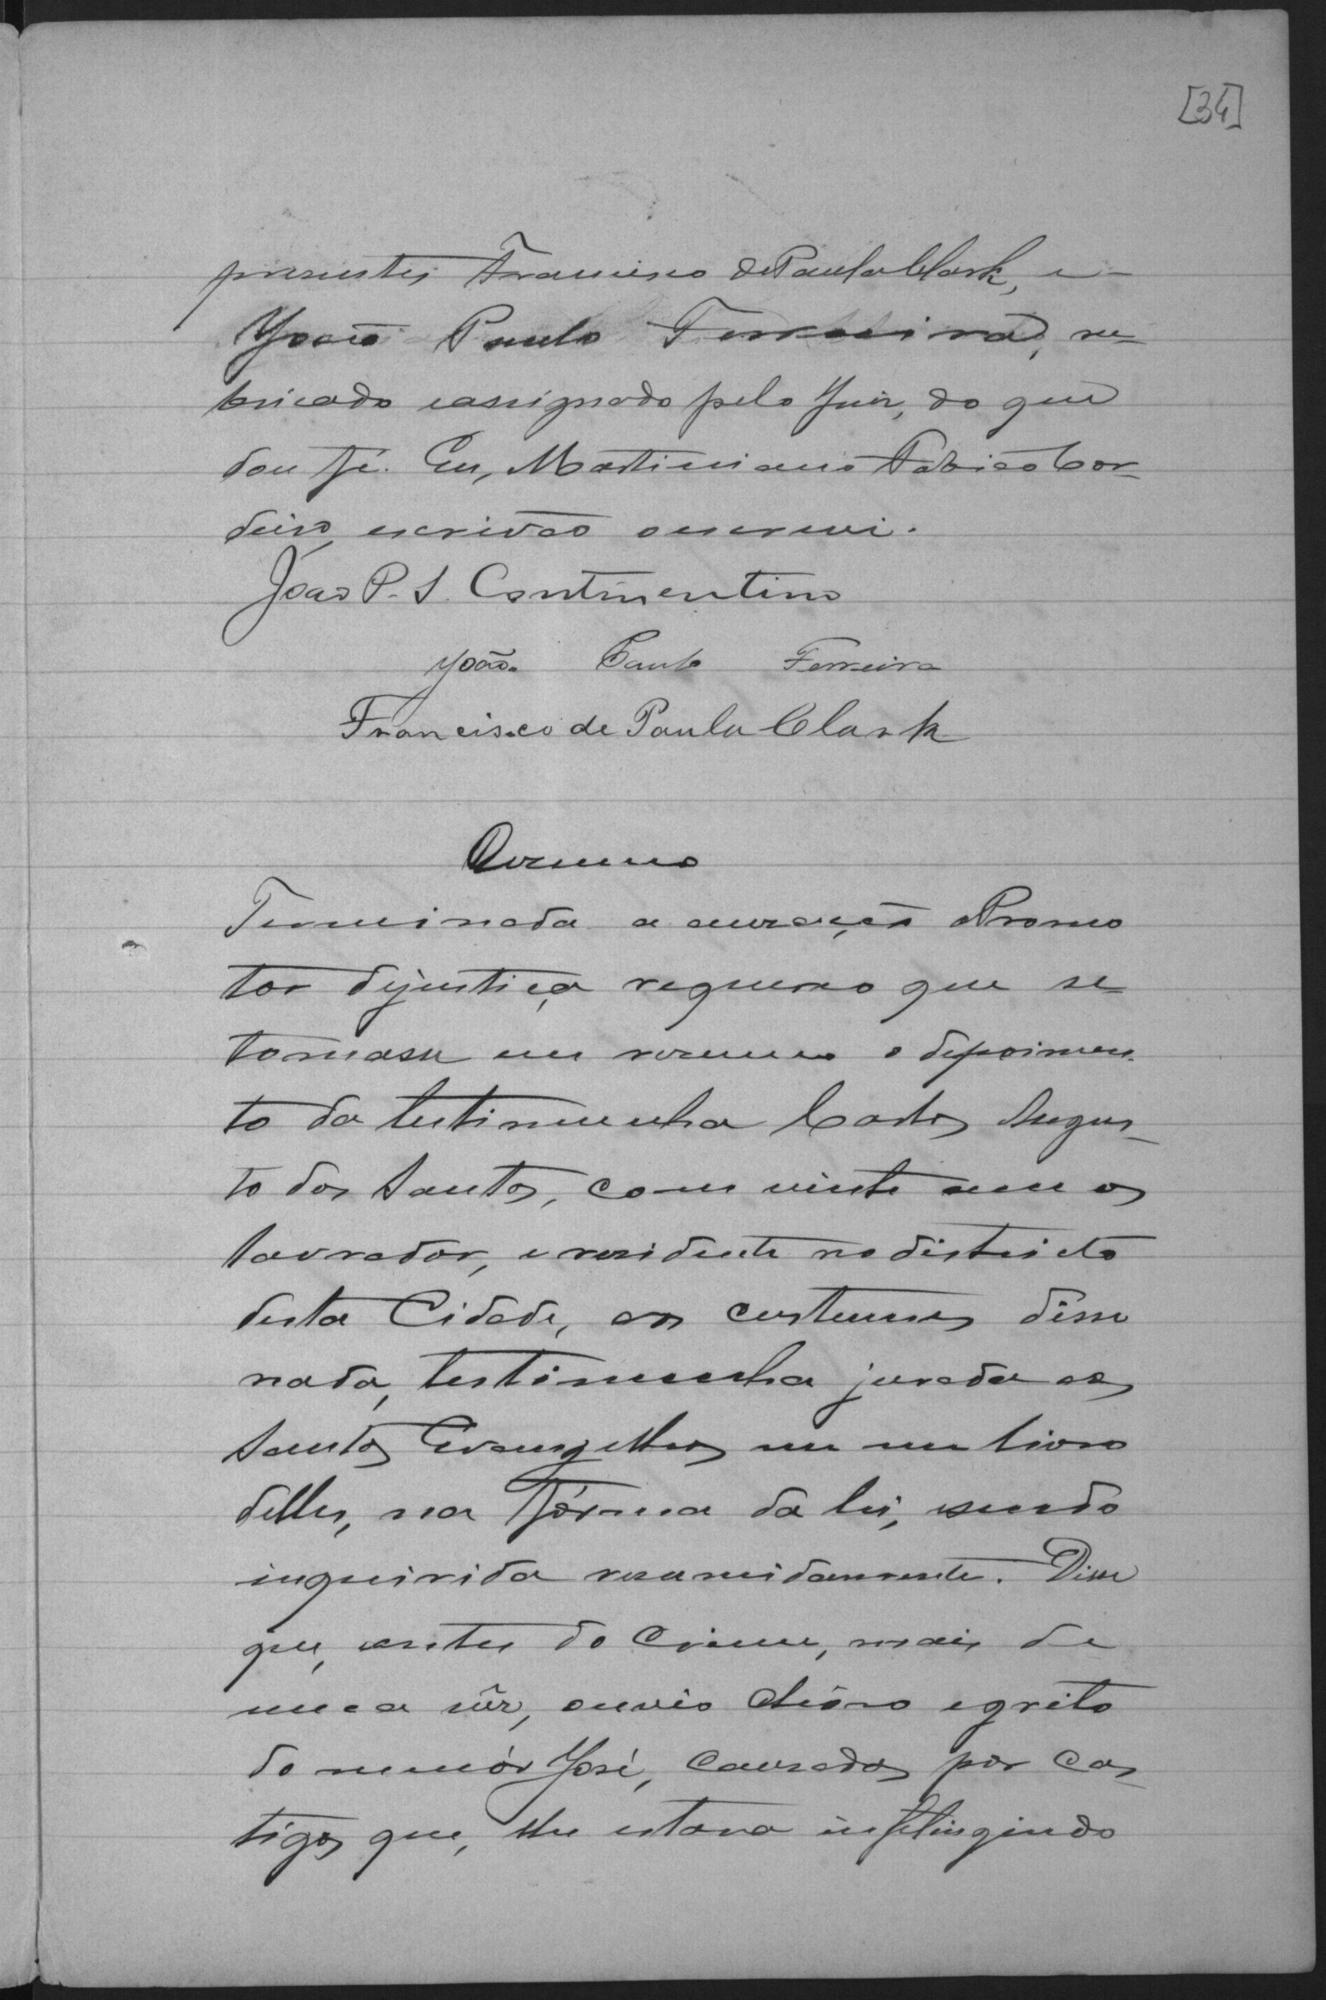 [34]
presentes Francisco de Paula Clark, e
João Paulo Ferreira, ru-
bricado e assignado pelo Juiz, do que
dou fé. Eu, Martiniano Fabião Cor-
deiro, escrivão o escrevi.
João P. S. Continentino
João Paulo Ferreira
Francisco de Paula Clark
Resumo
Terminada a accusação o Promo
tor de justiça, requereo que se
tomasse em resumo o depoimen-
to da testimunha Carlos Augus-
to dos Santos, com vinte annos
lavrador, e residente no districto
desta Cidade, aos custumes disse
nada, testimunha jurada aos
Santos Evangelhos em um livro
delles, na fórma da lei, e sendo
inquirida resumidamente. Disse
que, antes do crime, mais de
uma vêz, ouvio chóro e grito
do menór José, causados por cas
tigos que, lhe estava inflingindo